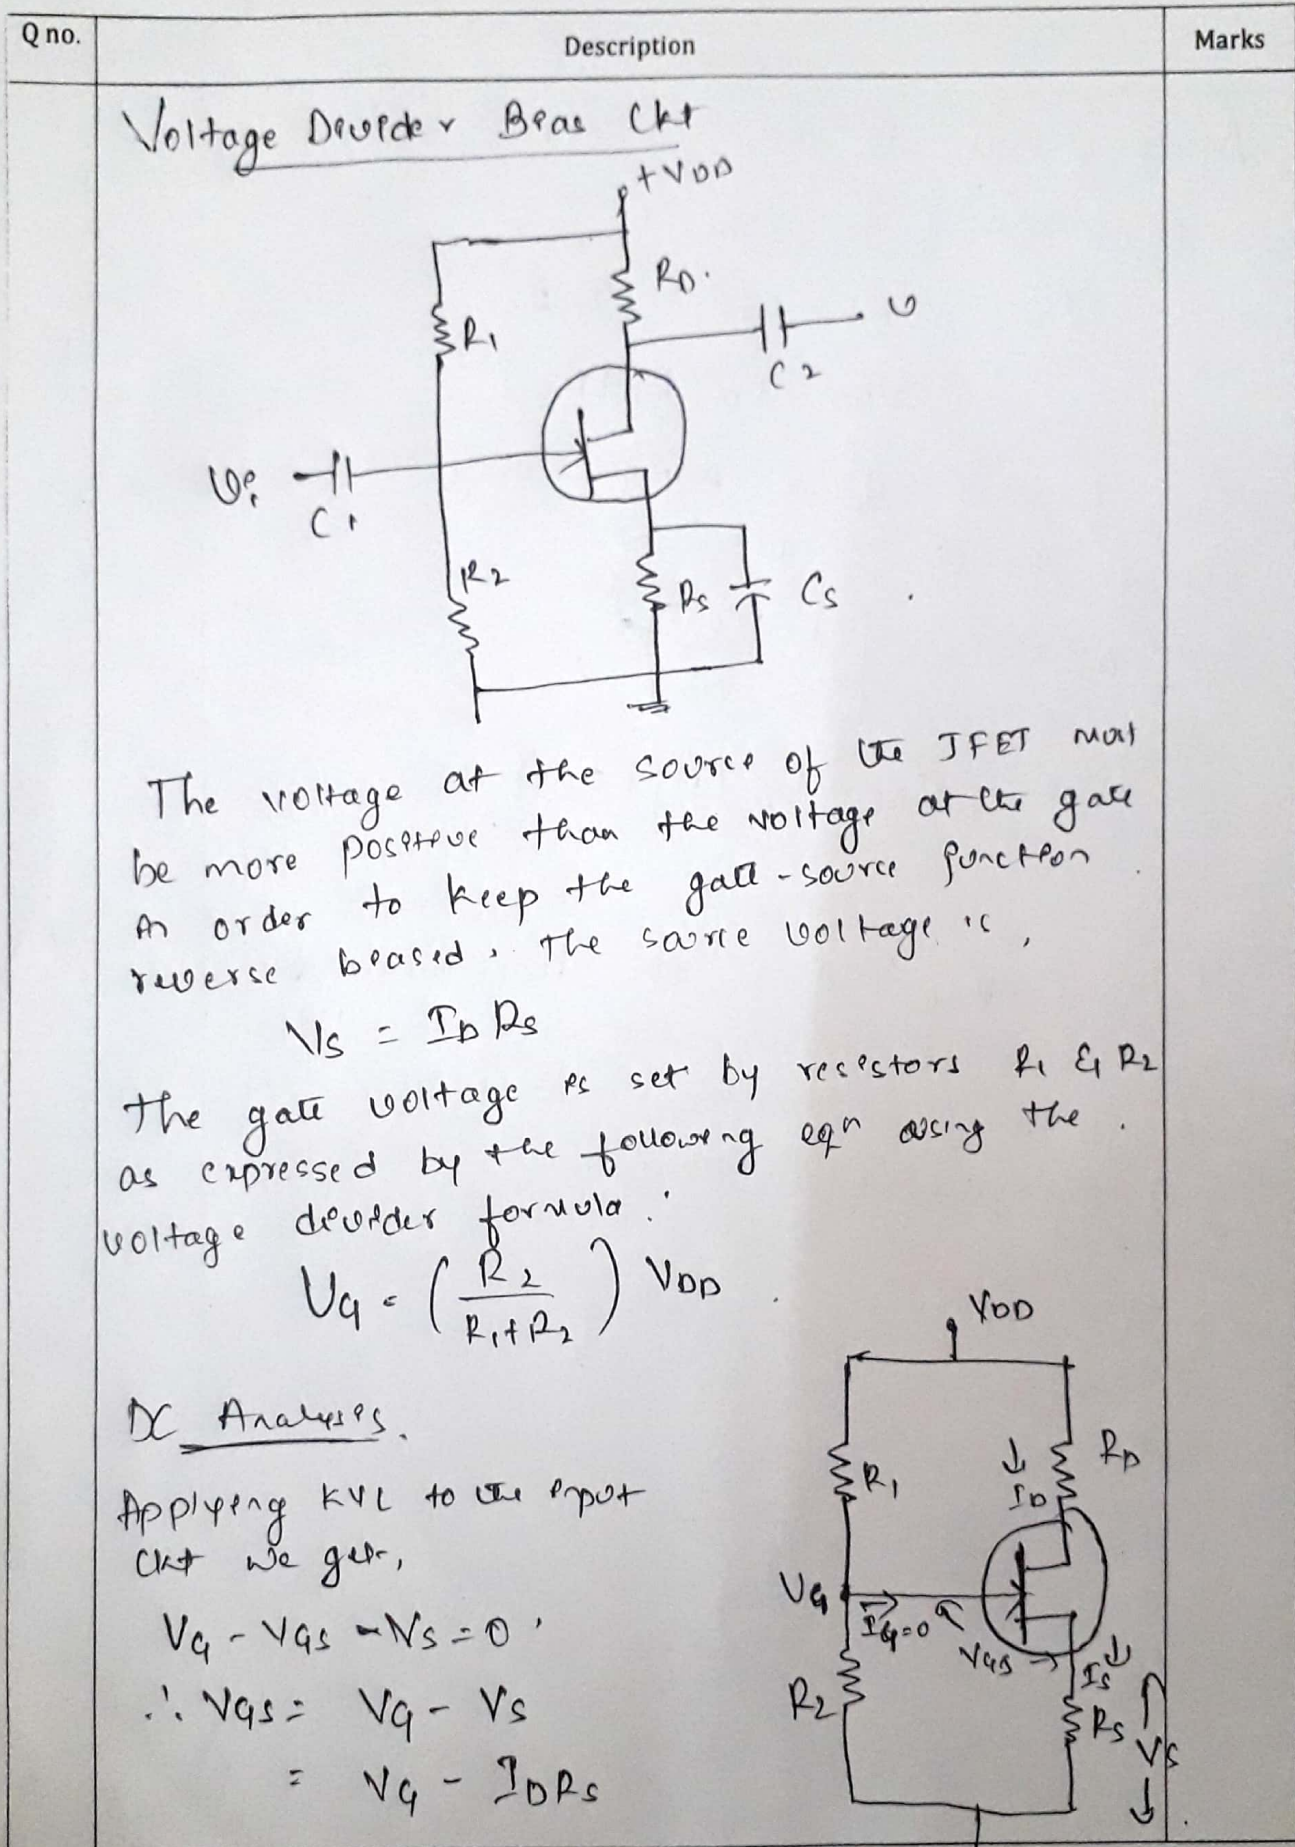 Q no.
Description
Marks
Voltage Divider Bias Ckt
+VDD
RD.
R1
C2
Vi
C1
R2
RS
CS
The voltage at the source of the JFET must
be more positive than the voltage at the gate
in order to keep the gate-source junction
reverse biased. The source voltage is,
VS = ID RS
The gate voltage is set by resistors R1 & R2
as expressed by the following eqn using the
voltage divider formula.
VG = ( R2 / R1+R2 ) VDD
VDD
DC Analysis.
RD
R1
ID
Applying KVL to the input
ckt we get,
VG
IG=0
VGS
IS
VG - VGS - VS = 0
R2
RS
VS
∴ VGS = VG - VS
= VG - IDRS